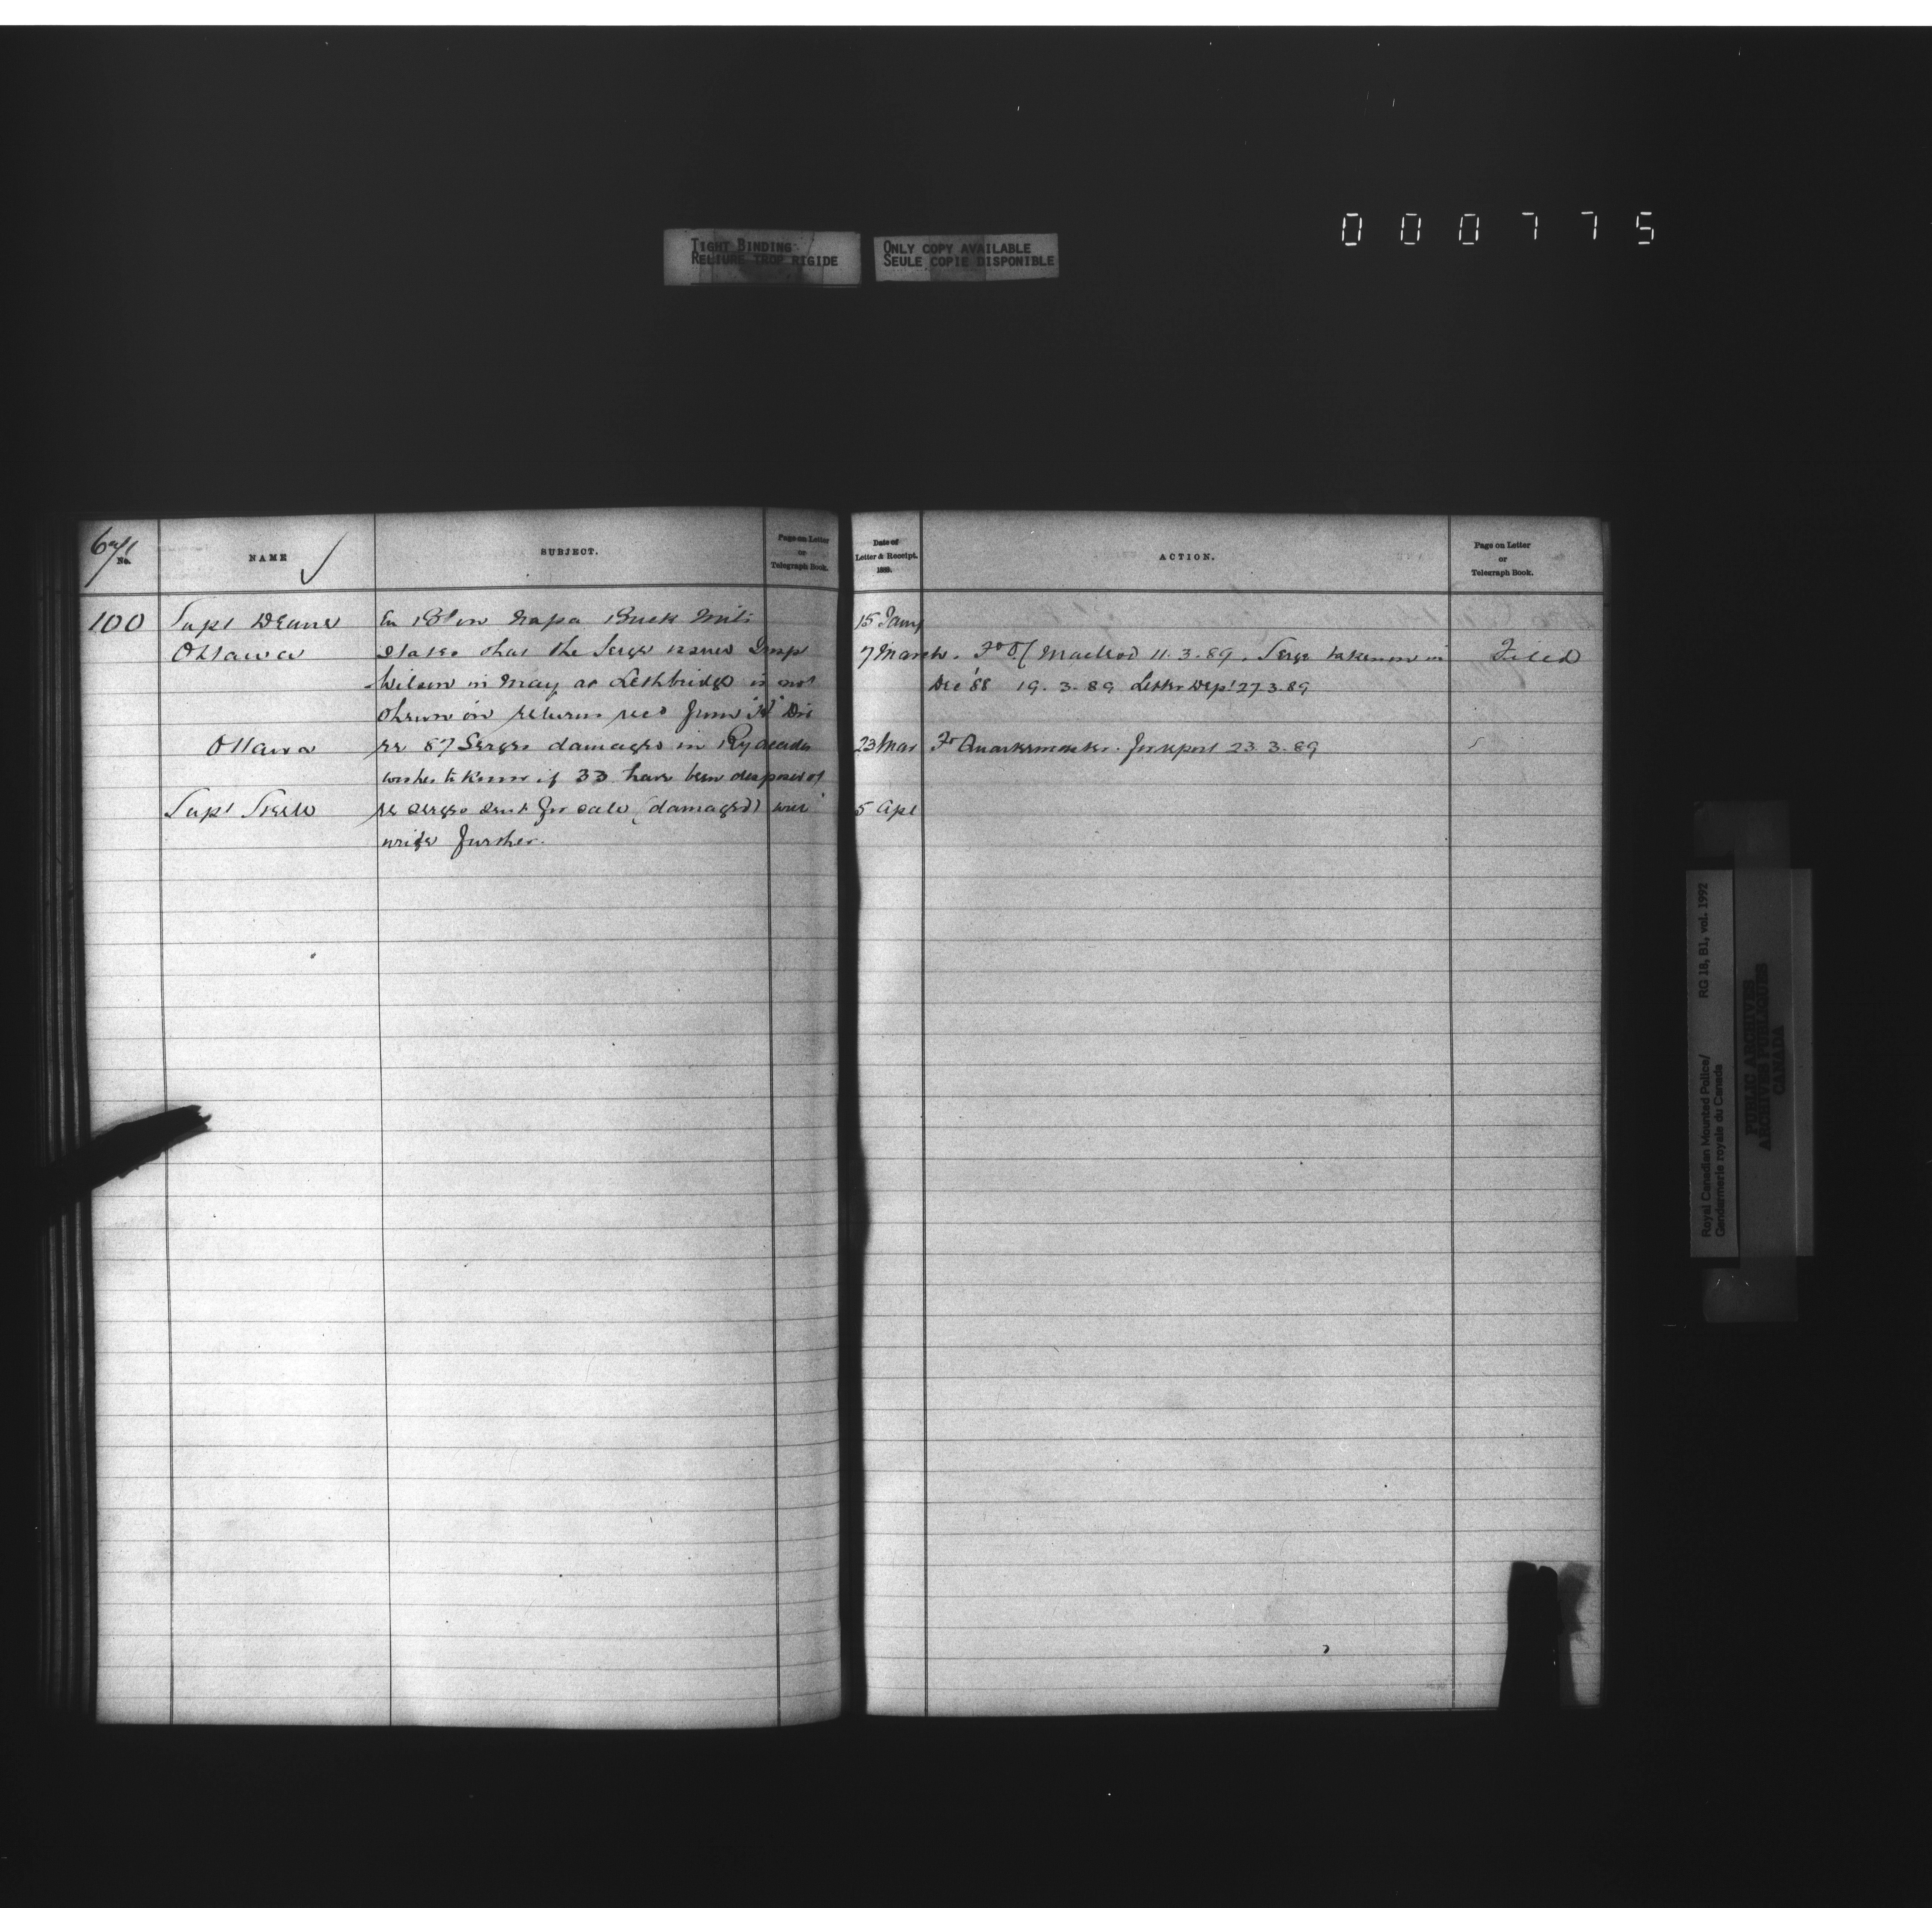 000775
TIGHT BINDING
RELIURE TROP RIGIDE
ONLY COPY AVAILABLE
SEULE COPIE DISPONIBLE
No.
NAME
SUBJECT.
Page on Letter
or
Telegraph Book.
Date of
Letter & Receipt.
1889.
ACTION.
Page on Letter
or
Telegraph Book.
100 Supt Deane Buck Mitts 15 Jany
Ottawa States that the Serge issued Insp 7 March. Macleod 11.3.89. Serge taken on in Filed
Wilson in May at Lethbridge is not Dec '88 19.3.89 Letter Dept 27.3.89
shewn on returns recd from Div
Ottawa re 87 Serges damaged in 23 Mar To Quartermaster for report 23.3.89
wishes to know if 33 have been disposed of
Supt Steele re serges sent for sale (damaged) will 5 Apl
write further.
Royal Canadian Mounted Police/
Gendarmerie royale du Canada
RG 18, B1, vol. 1992
PUBLIC ARCHIVES
ARCHIVES PUBLIQUES
CANADA